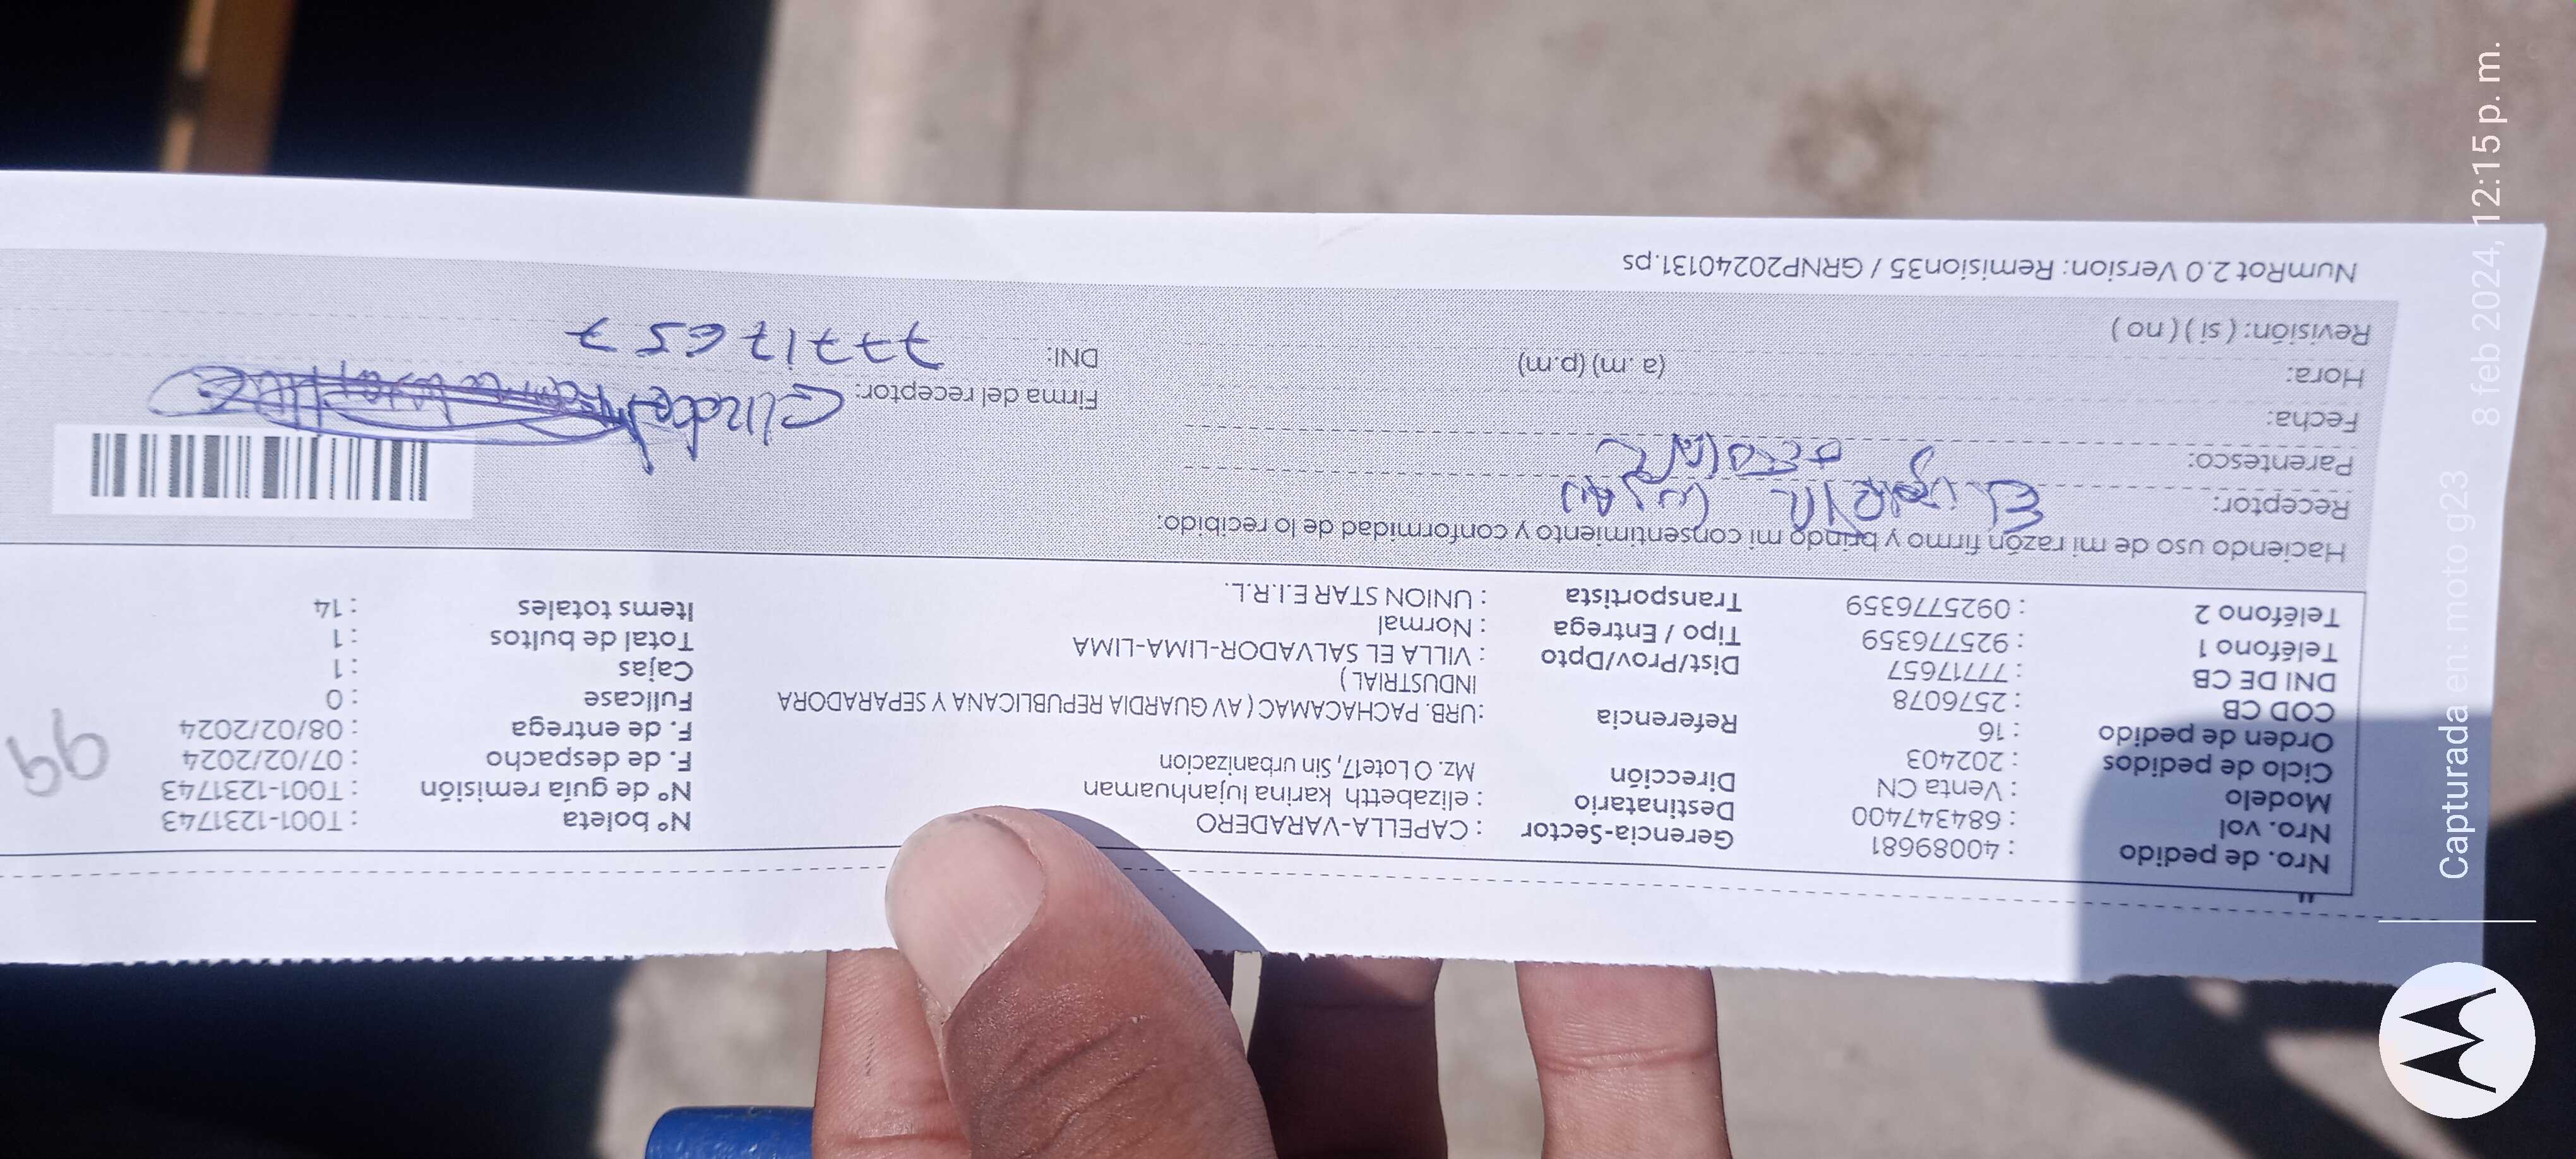 Nro. de pedido : 40089681 Gerencia-Sector : CAPELLA-VARADERO N° boleta : T001-1231743
Nro. vol : 684347400 Destinatario : elizabetth karina lujanhuaman N° de guía remisión : T001-1231743
Modelo : Venta CN Dirección Mz. O Lote17, Sin urbanizacion F. de despacho : 07/02/2024
Ciclo de pedidos : 202403 F. de entrega : 08/02/2024
Orden de pedido : 16 Referencia :URB. PACHACAMAC ( AV GUARDIA REPUBLICANA Y SEPARADORA Fullcase : 0
COD CB : 2576078 INDUSTRIAL ) Cajas : 1
DNI DE CB : 77717657 Dist/Prov/Dpto : VILLA EL SALVADOR-LIMA-LIMA Total de bultos : 1
Teléfono 1 : 925776359 Tipo / Entrega : Normal Items totales : 14
Teléfono 2 : 0925776359 Transportista : UNION STAR E.I.R.L.
99
Haciendo uso de mi razón firmo y brindo mi consentimiento y conformidad de lo recibido:
Receptor:
Parentesco:
Fecha:
Firma del receptor:
Hora: (a. m) (p.m)
DNI: 77717657
Revisión: ( si ) ( no )
NumRot 2.0 Version: Remision35 / GRNP20240131.ps
Capturada en: moto g23 8 feb 2024, 12:15 p. m.